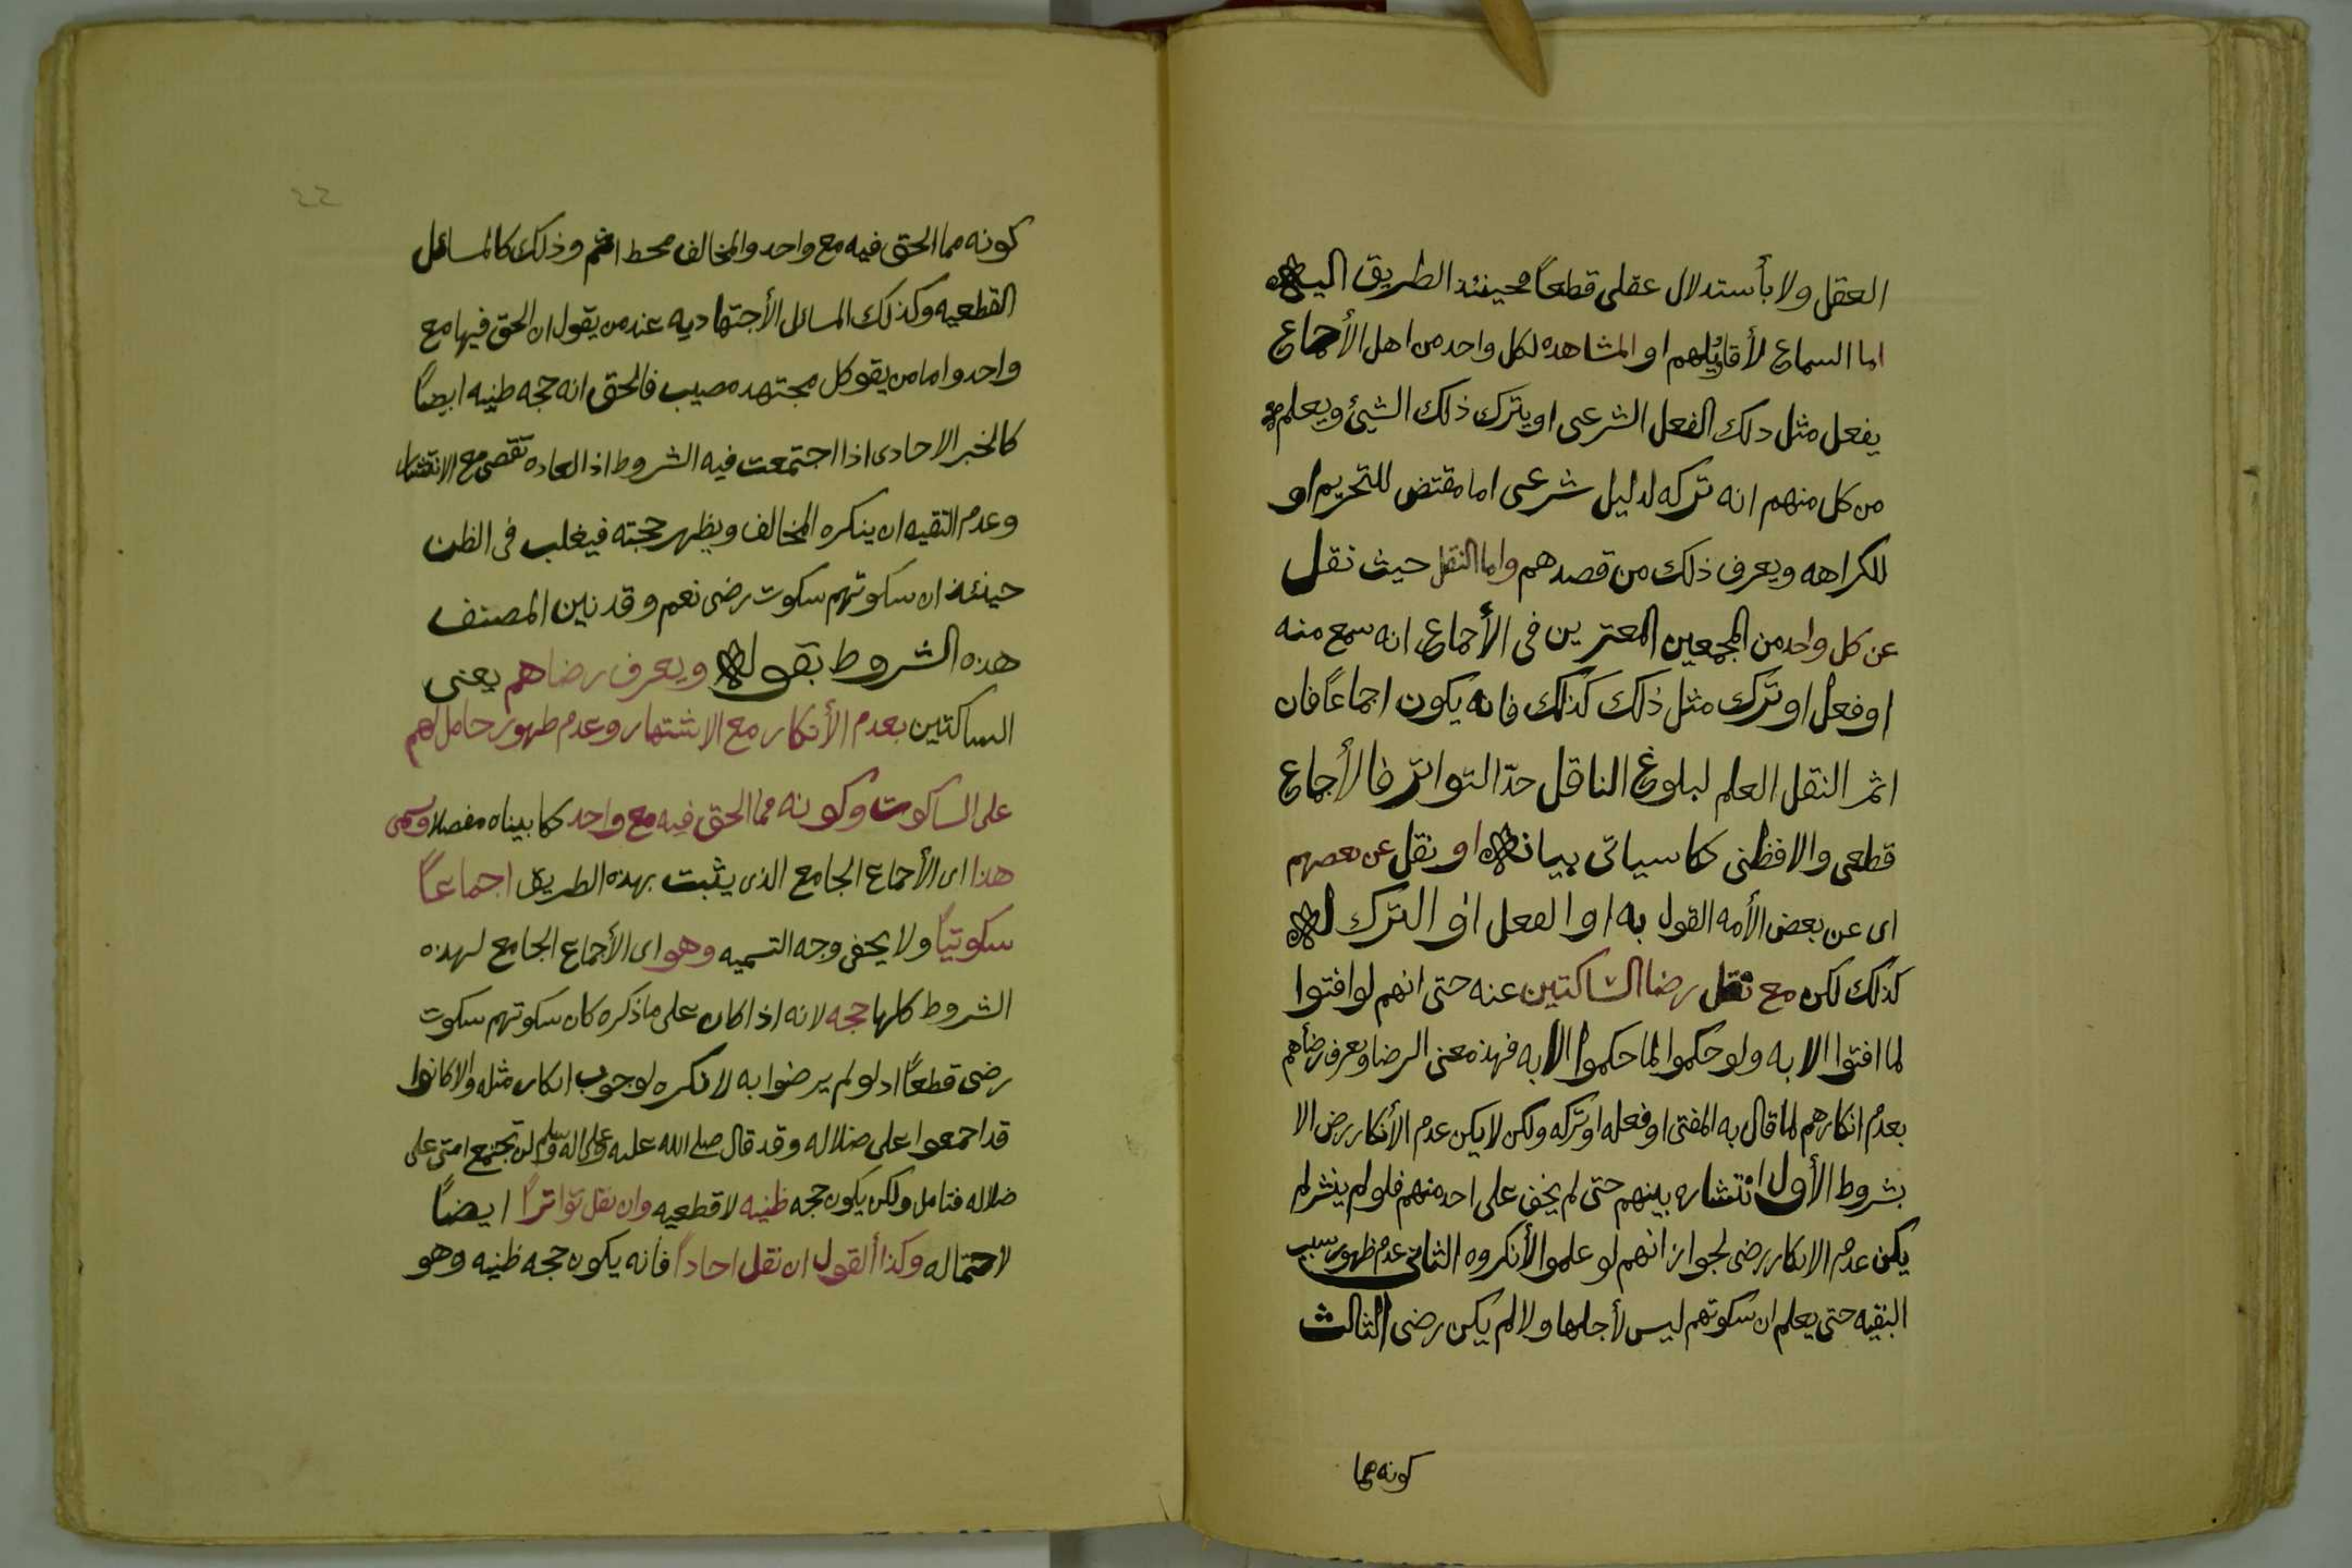 العقل ولا بأستدلال عقلى قطعاً فحينئذ الطريق اليه
اما السماع لأقاويلهم او المشاهده لكل واحد من اهل الأجماع
يفعل مثل دلك الفعل الشرعى او يترك ذلك الشيئ ويعلم
من كل منهم انه تركه لدليل شرعى اما مقتض للتحريم او
للكراهه ويعرف ذلك من قصدهم واما النقل حيث نقل
عن كل واحد من المجمعين المعتبرين فى الأجماع انه سمع منه
او فعل او ترك مثل ذلك كذلك فانه يكون اجماعاً فان
اثمر النقل العلم لبلوغ الناقل حدّ التواتر فالأجماع
قطعى والا فظنى كما سياتى بيانه او نقل عن بعصهم
اى عن بعض الأمه القول به او الفعل او الترك له
كذلك لكن مع نقل رضا الساكتين عنه حتى انهم لو افتوا
لما افتوا الا به ولو حكموا لما حكموا الا به فهذه معنى الرضا ويعرف رضأهم
بعدم انكارهم لما قال به المفتى او فعله او تركه ولكن لا يكن عدم الأنكار رض الا
بشروط الأول انتشاره بينهم حتى لم يخف على احد منهم فلو لم ينشر لم
يكن عدم الانكار رضى لجواز انهم لو علموا لأنكروه الثانى عدم ظهور سبب
التقيه حتى يعلم ان سكوتهم ليس لأجلها ولا لم يكن رضى الثالث
كونه مما
٢٢
كونه مما الحق فيه مع واحد والمخالف مخط اثم وذلك كالمسائل
القطعيه وكذلك المسائل الأجتهاديه عند من يقول ان الحق فيها مع
واحد واما من يقو كل مجتهد مصيب فالحق انه حجه ظنيه ايضاً
كالخبر الاحادى اذا اجتمعت فيه الشروط اذ العاده تقصى مع الانتشار
وعدم التقيه ان ينكره المخالف ويظهر حجته فيغلب فى الظن
حينئذ ان سكوتهم سكوت رضى نعم وقد نبين المصنف
هذه الشروط بقوله ويعرف رضاهم يعنى
الساكتين بعدم الأنكار مع الاشتهار وعدم ظهور حامل لهم
على الساكوت وكونه مما الحق فيه مع واحد كما بيناه مفصلا وسمى
هذا اى الأجماع الجامع الذى يثبت بهذه الطريق اجماعاً
سكوتياً ولا يخفى وجه التسميه وهو اى الأجماع الجامع لهذه
الشروط كلها حجه لانه اذا كان على ماذكره كان سكوتهم سكوت
رضى قطعاً اد لو لم يرضوا به لانكره لوجوب انكار مثله والا كانوا
قد اجمعوا على ضلاله وقد قال صلى الله عليه وعلى اله وسلم لن تجتمع امتى على
ضلاله فتامل ولكن يكون حجه ظنيه لا قطعيه وان نقل تواتراً ايضاً
لاحتماله وكذا القول ان نقل احاداً فأنه يكون حجه ظنيه وهو